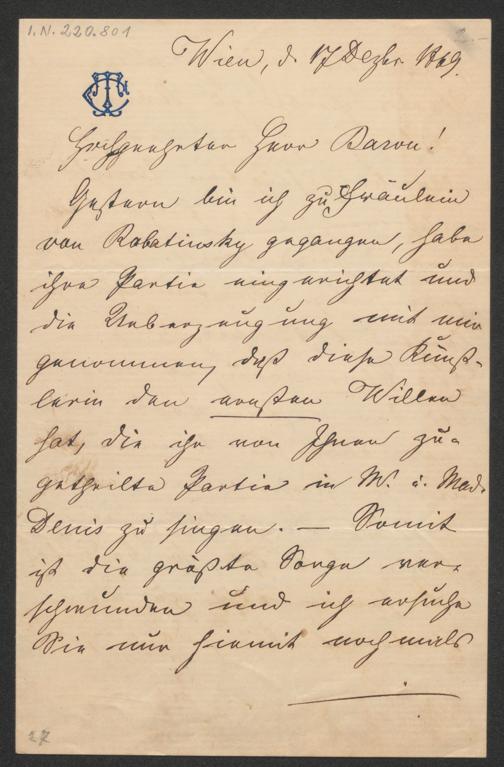 I.N. 220.801
Wien, d. 17 Dezbr. 1869.
Hochgeehrter Herr Baron!
Gestern bin ich zu Fräulein
von Rabatinsky gegangen, habe
ihre Partie eingerichtet und
die Ueberzeugung mit mir
genommen, daß diese Künst-
lerin den ernsten Willen
hat, die ihr von Ihnen zu-
getheilte Partie in M. u. Mad.
Denis zu singen. — Somit
ist die größte Sorge ver-
schwunden und ich ersuche
Sie nur hiemit nochmals
27